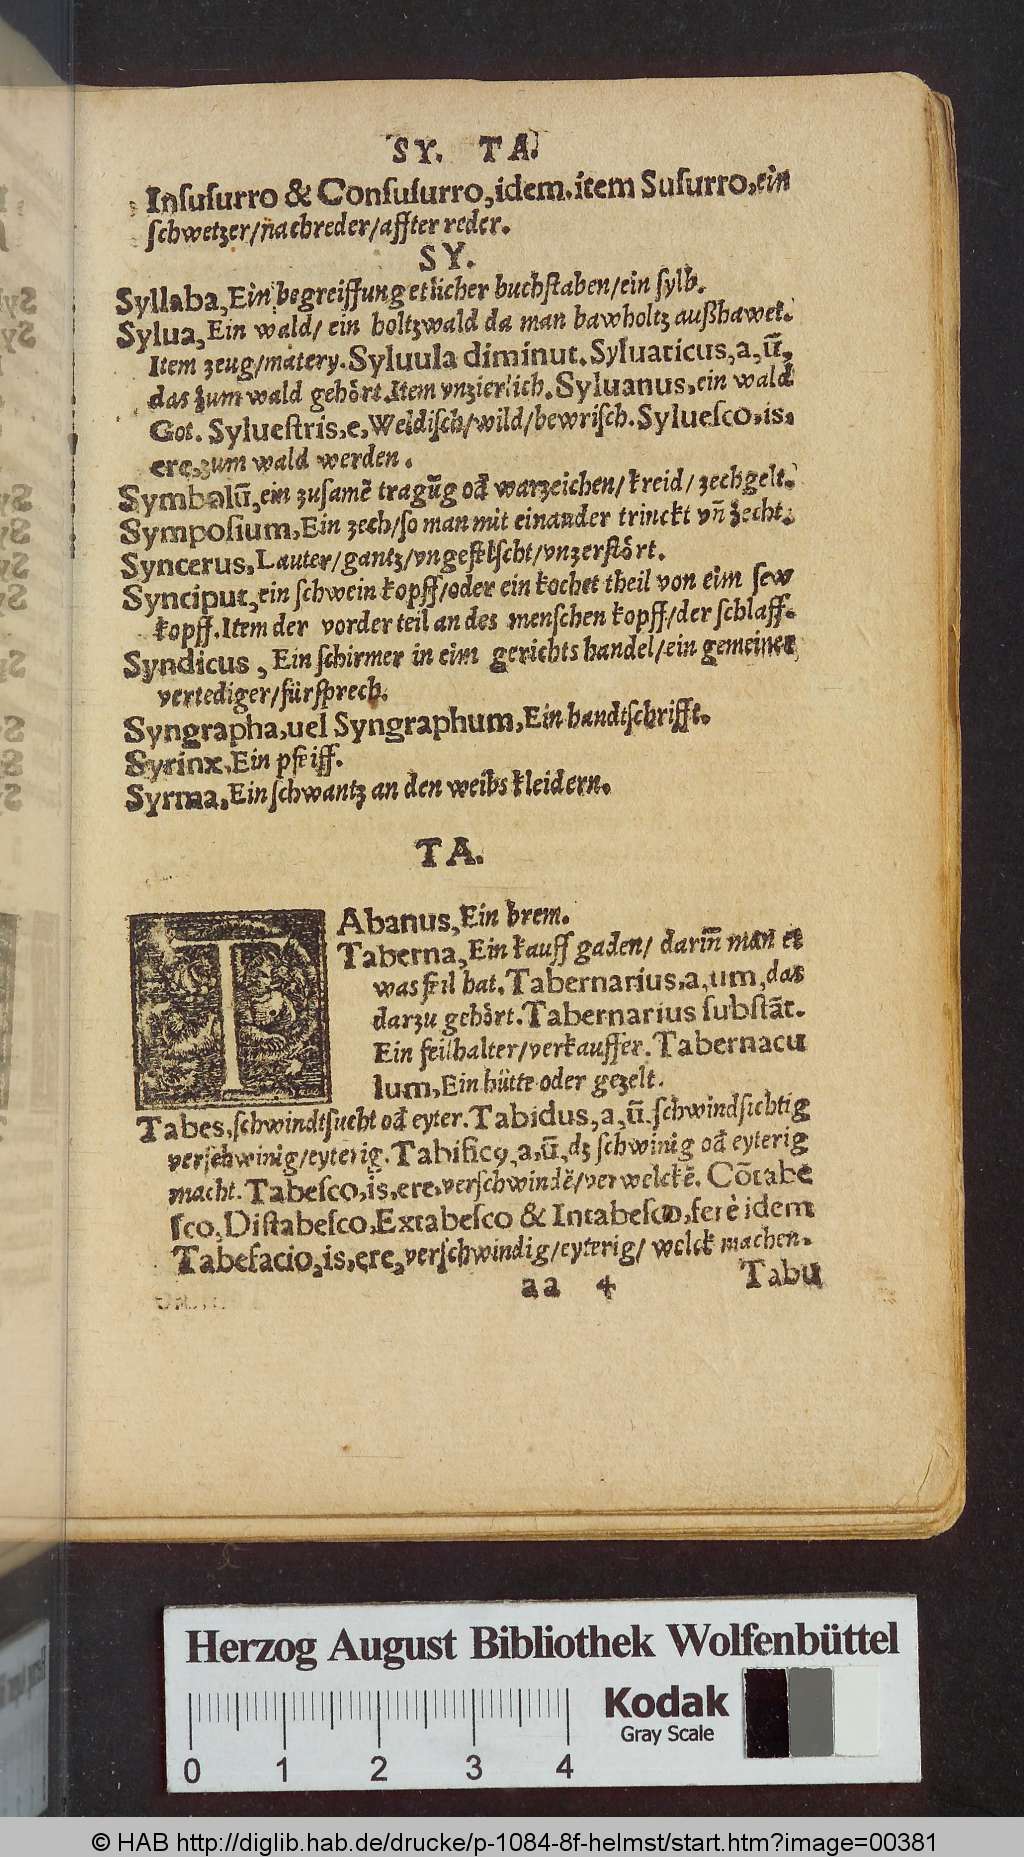 SY. TA.
Inſuſurro & Conſuſurro, idem. item Suſurro, ein
ſchwetzer/nachreder/affter reder.
SY.
Syllaba, Ein begreiffung etlicher buchſtaben/ein ſylb.
Sylua, Ein wald/ ein holtzwald da man bawholtz außhawet.
Item zeug/matery. Syluula diminut. Syluaticus, a, ū,
das zum wald gehört. Item vnzierlich. Syluanus, ein wald
Got. Sylueſtris, e, Weldiſch/wild/bewriſch. Sylueſco, is,
ere, zum wald werden.
Symbolū, ein zuſamē tragūg od' warzeichen/ kreid/ zechgelt.
Sympoſium, Ein zech/ſo man mit einander trinckt vn̄ zecht.
Syncerus, Lauter/gantz/vngefelſcht/vnzerſtört.
Synciput, ein ſchwein kopff/oder ein kochet theil von eim ſew
kopff. Item der vorder teil an des menſchen kopff/der ſchlaff.
Syndicus, Ein ſchirmer in eim gerichts handel/ein gemeiner
vertediger/fürſprech.
Syngrapha, uel Syngraphum, Ein handtſchrifft.
Syrinx, Ein pfeiff.
Syrma, Ein ſchwantz an den weibs kleidern.
TA.
TAbanus, Ein brem.
Taberna, Ein kauff gaden/ darin̄ man et
was feil hat. Tabernarius, a, um, das
darzu gehört. Tabernarius ſubſtāt.
Ein feilhalter/verkauffer. Tabernacu
lum, Ein hütte oder gezelt.
Tabes, ſchwindtſucht od' eyter. Tabidus, a, ū. ſchwindſichtig
verſchwinig/eyterig. Tabificꝰ, a, ū, dz ſchwinig od' eyterig
macht. Tabeſco, is, ere, verſchwindē/verwelckē. Cōtabe
ſco, Diſtabeſco, Extabeſco & Intabeſco, ferè idem
Tabefacio, is, ere, verſchwindig/eyterig/ welck machen.
aa 4 Tabu
Herzog August Bibliothek Wolfenbüttel
Kodak
Gray Scale
0 1 2 3 4
© HAB http://diglib.hab.de/drucke/p-1084-8f-helmst/start.htm?image=00381